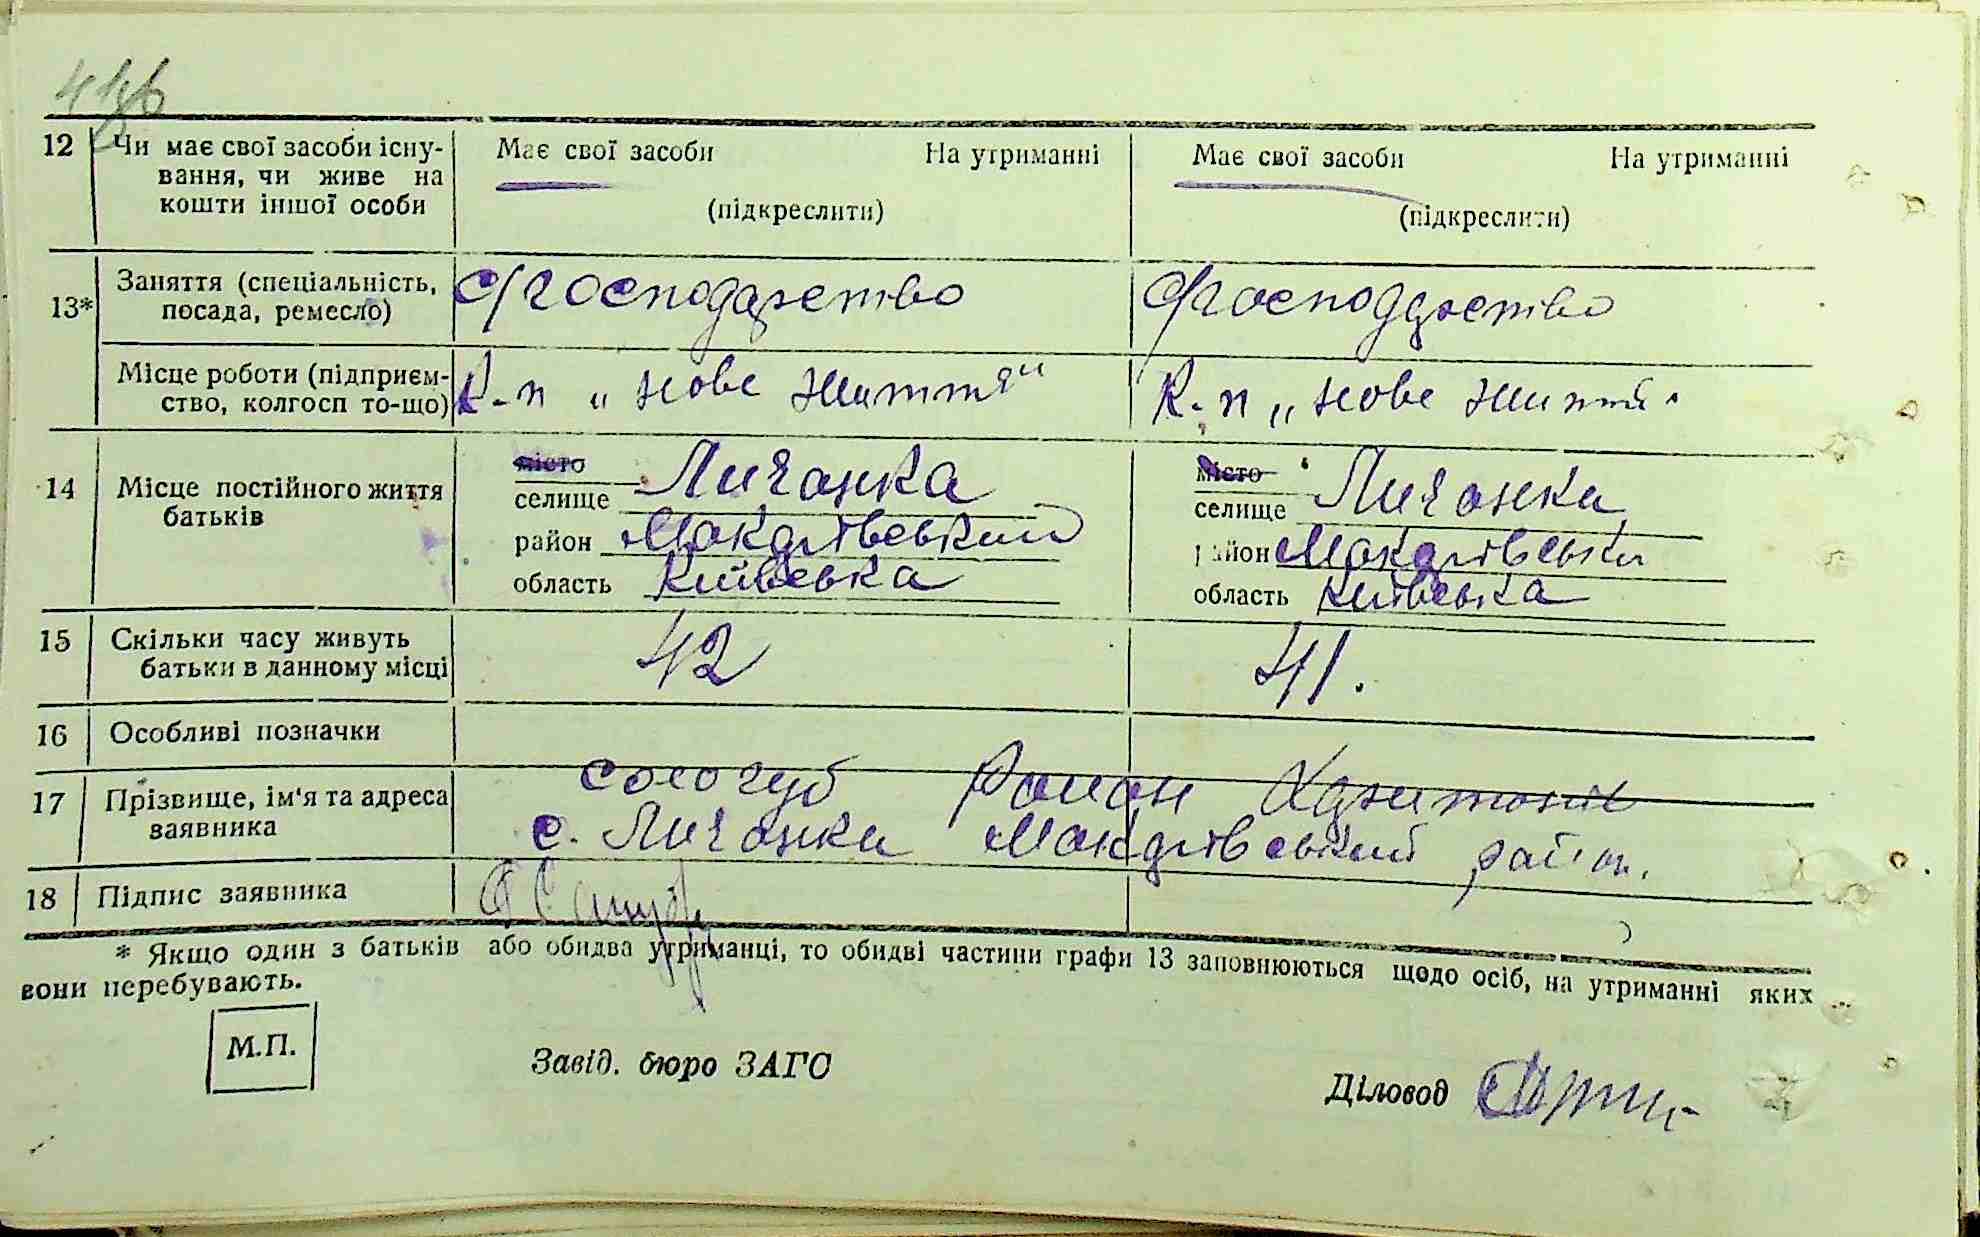 12 Чи має свої засоби існу-
вання, чи живе на
кошти іншої особи
Має свої засоби На утриманні
(підкреслити)
Має свої засоби На утриманні
(підкреслити)
13* Заняття (спеціальність,
посада, ремесло)
с/господарство
с/господарство
Місце роботи (підприєм-
ство, колгосп то-що)
К-п „нове життя"
К-п „нове життя"
14 Місце постійного життя
батьків
місто
селище Личанка
район Макарівський
область Київська
місто
селище Личанка
район Макарівськи
область Київська
15 Скільки часу живуть
батьки в данному місці
42
41.
16 Особливі позначки
17 Прізвище, ім'я та адреса
заявника
Сологуб Роман Харитонів
с. Личанки Макарівський район.
18 Підпис заявника
* Якщо один з батьків або обидва утриманці, то обидві частини графи 13 заповнюються щодо осіб, на утриманні яких
вони перебувають.
М.П.
Завід. бюро ЗАГС
Діловод